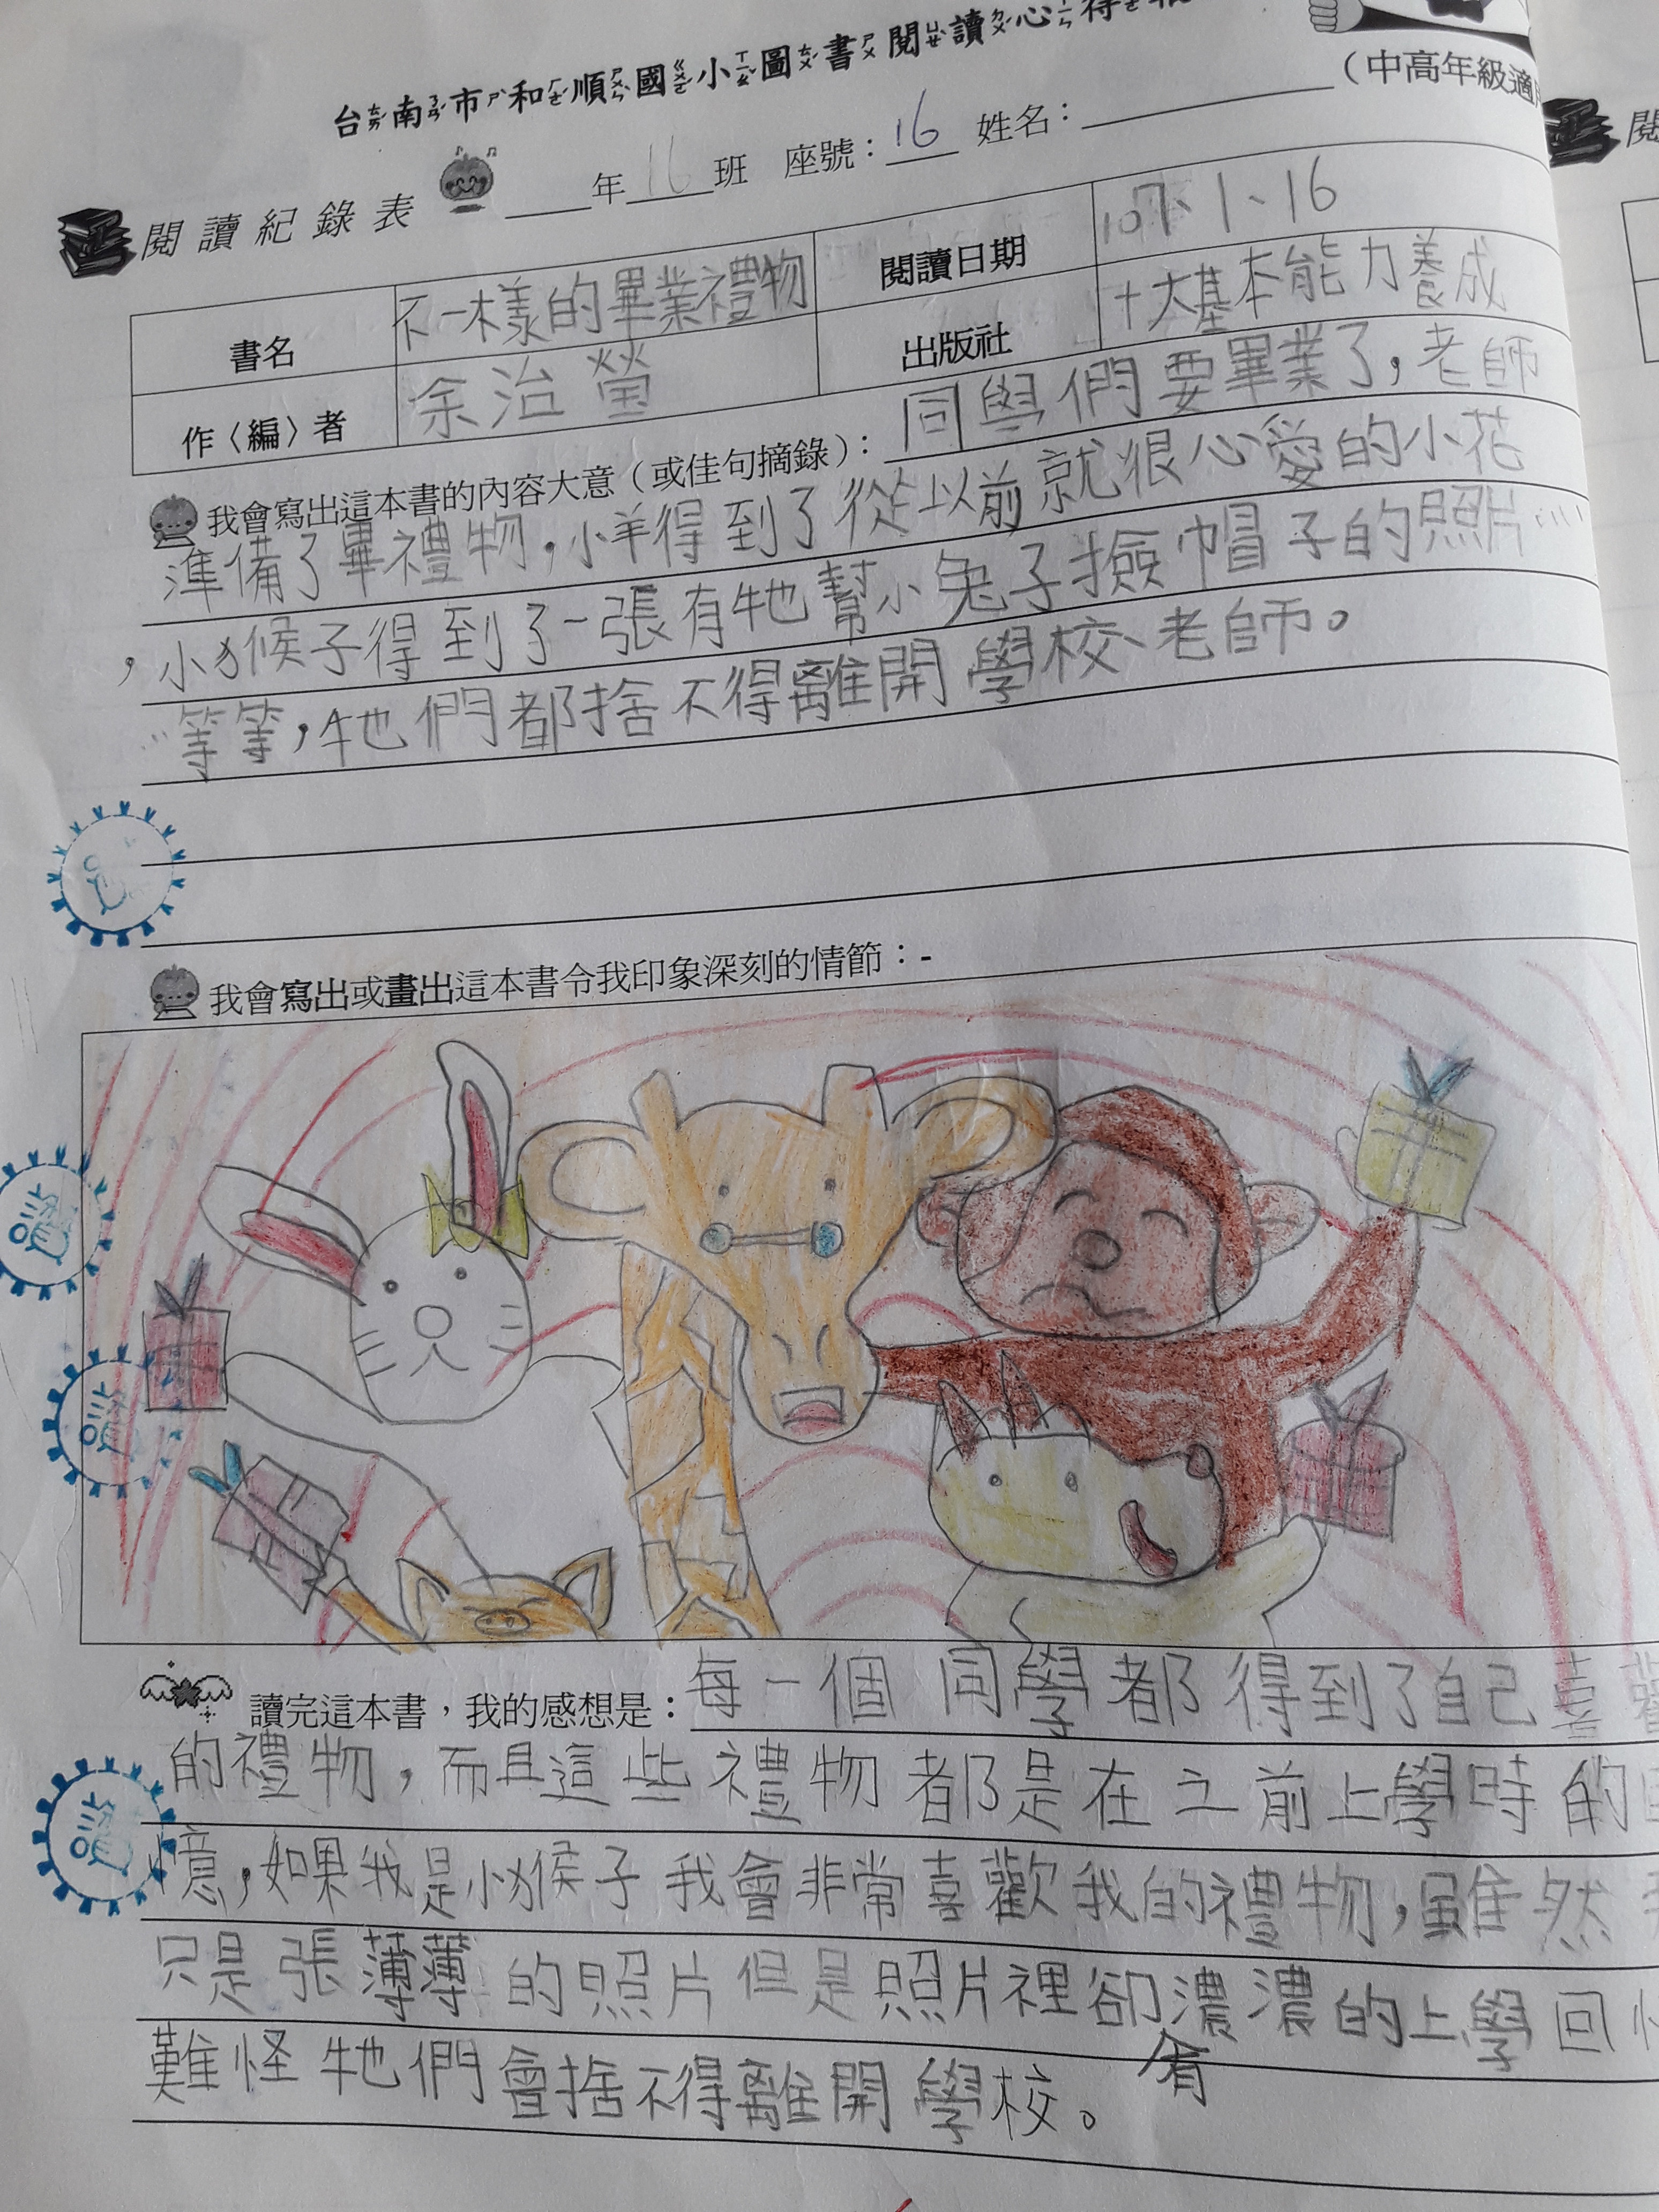 台南市和順國小圖書閱讀心得
(中高年級適
閱讀紀錄表 ____年16班 座號：16 姓名：
書名 不一樣的畢業禮物 閱讀日期 107、1、16
作〈編〉者 余治瑩 出版社 十大基本能力養成
我會寫出這本書的內容大意（或佳句摘錄）：同學們要畢業了，老師
準備了畢禮物，小羊得到了從以前就很心愛的小花
，小猴子得到了一張有牠幫小兔子撿帽子的照片……
……等等，牠們都捨不得離開學校、老師。
我會寫出或畫出這本書令我印象深刻的情節：-
讀完這本書，我的感想是：每一個同學都得到了自己喜歡
的禮物，而且這些禮物都是在之前上學時的回
憶，如果我是小猴子我會非常喜歡我的禮物，雖然
只是張薄薄的照片但是照片裡卻有濃濃的上學回
難怪牠們會捨不得離開學校。
讚
讚
讚
閱